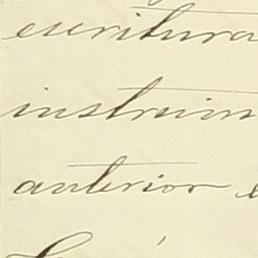 escritura
instrum
anterior